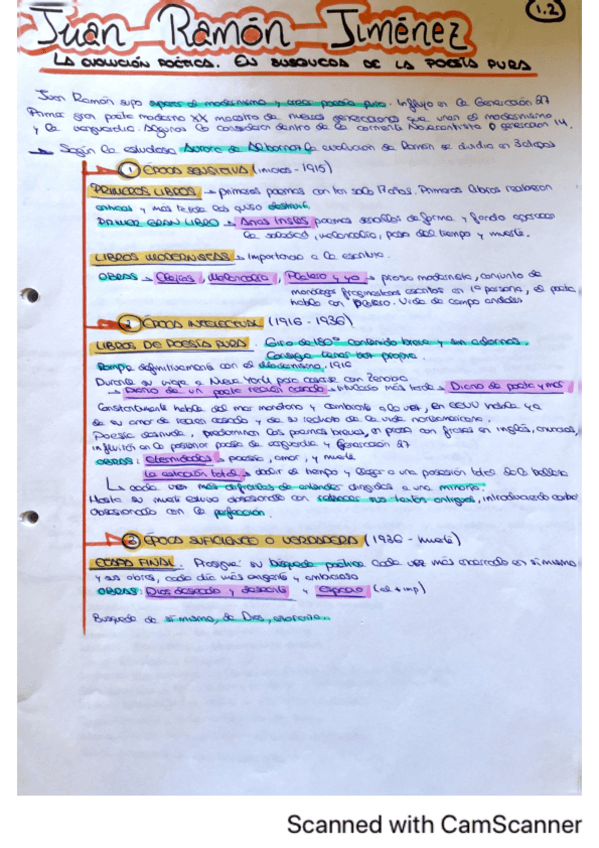 1.2
Juan Ramón Jiménez
LA EVOLUCIÓN POÉTICA. EN BUSQUEDA DE LA POESÍA PURA
Juan Ramón supo superar el modernismo y crear poesía pura. Influyó en la Generación 27
Primer gran poeta moderno XX maestro de nuevas generaciones que unen el modernismo
y la vanguardia. Algunos lo consideran dentro de la corriente Novecentista o generación 14.
→ Según la estudiosa Aurora de Albornoz la evolución de Ramón se divide en 3 etapas
1 ÉPOCA SENSITIVA (inicios - 1915)
PRIMEROS LIBROS → primeros poemas con tan solo 17 años. Primeros libros recibieron
críticas y más tarde los quiso destruir.
PRIMER GRAN LIBRO → Arias tristes poemas sencillos de forma y fondo
la soledad, melancolía, paso del tiempo y muerte.
LIBROS MODERNISTAS → Importancia a la escritura.
OBRAS → Elejías, Melancolía, Platero y yo → prosa modernista, conjunto de
monólogos fragmentarios escritos en 1ª persona, el poeta
habla con Platero. Vida de campo andaluz
2 ÉPOCA INTELECTUAL (1916 - 1936)
LIBROS DE POESÍA PURA. Giro de 180º contenido breve y sin adornos.
Consigue tener voz propia.
Rompe definitivamente con el Modernismo. 1916
Durante su viaje a New York para casarse con Zenobia
→ Diario de un poeta recién casado → titulado más tarde → Diario de poeta y mar
Constantemente habla del mar monótono y cambiante a la vez, en EEUU habla ya
de su amor de recién casado y de su rechazo de la vida norteamericana.
Poesía desnuda, predominan los poemas breves, en prosa con frases en inglés, anuncios,
influirá en la posterior poesía de vanguardia y Generación 27
OBRAS: Eternidades → poesía, amor, y muerte
La estación total → abolir el tiempo y llegar a una posesión total de la belleza
↳ cada vez más difíciles de entender dirigidos a una minoría.
Hasta su muerte estuvo obsesionado con rehacer sus textos antiguos, introduciendo cambios
obsesionado con la perfección.
3 ÉPOCA SUFICIENTE O VERDADERA (1936 - muerte)
ETAPA FINAL. Prosigue su búsqueda poética cada vez más encerrado en sí mismo
y su obra, cada día más exigente y ambicioso
OBRAS: Dios deseado y deseante y Espacio (+ imp)
Búsqueda de sí mismo, de Dios,
Scanned with CamScanner